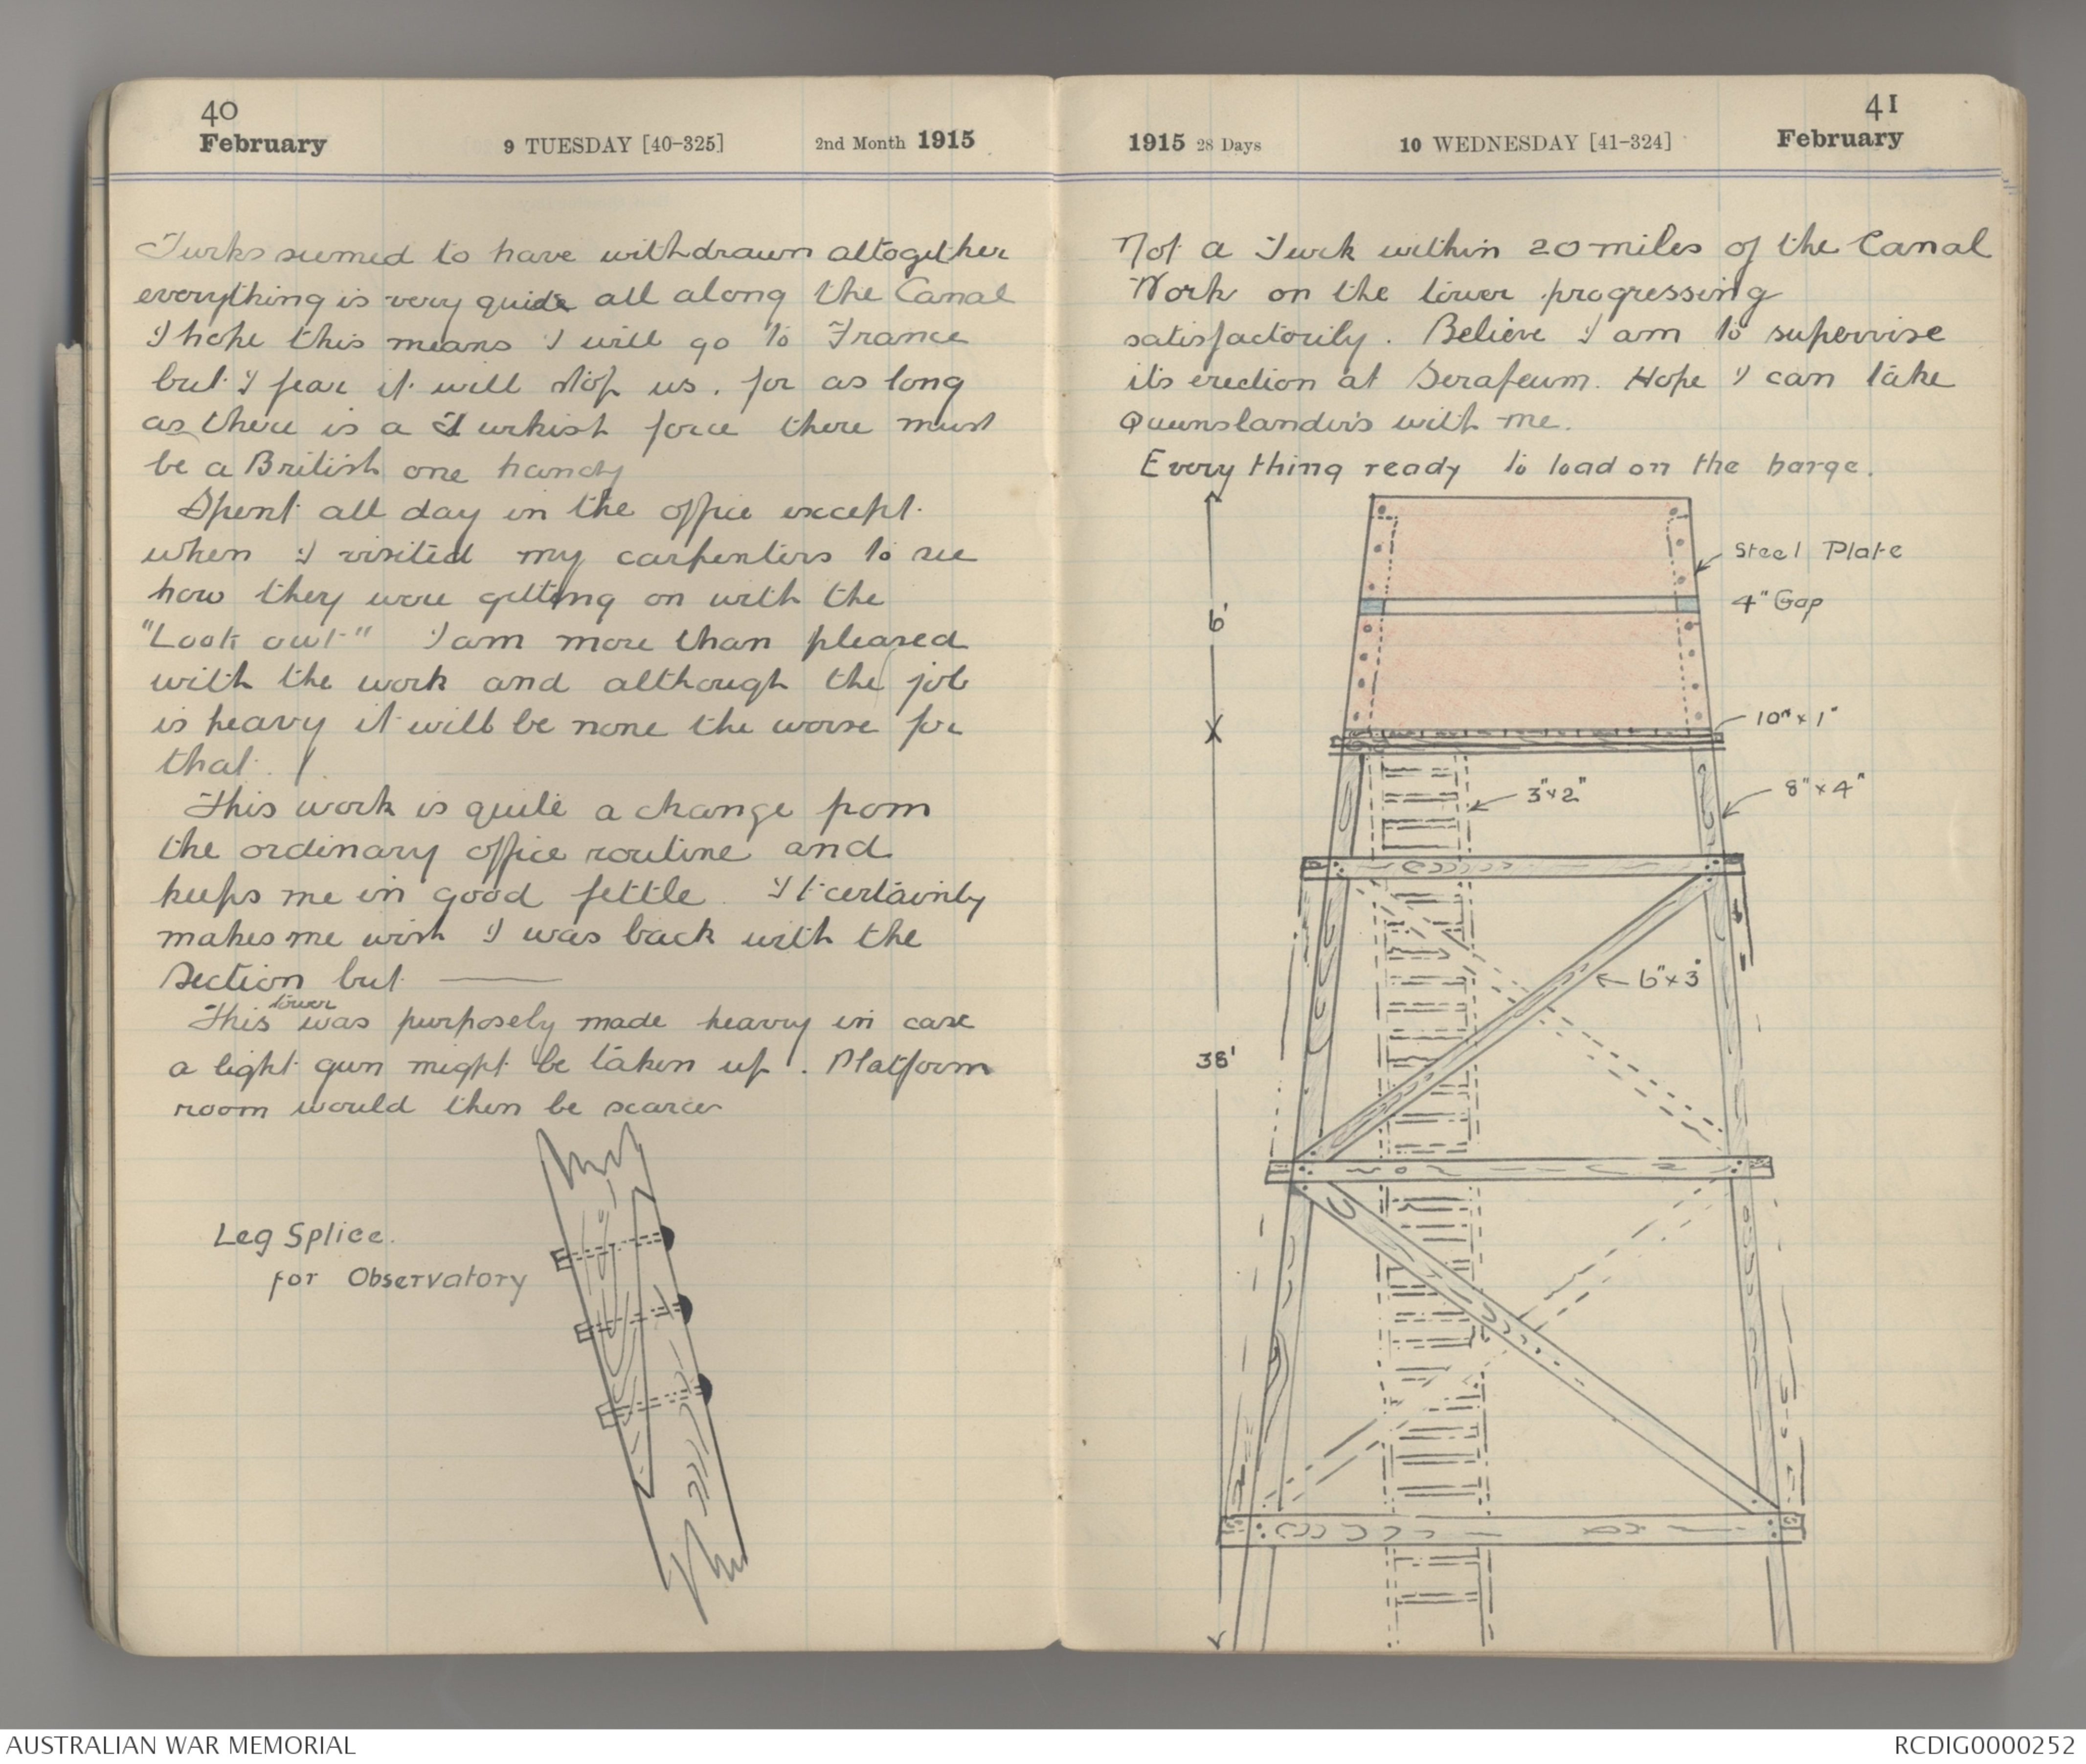 40
February
9 TUESDAY [40-325]
2nd Month 1915
Turks seemed to have withdrawn altogether
everything is very quide all along the Canal
I hope this means I will go to France
but I fear it will stop us. for as long
as there is a Turkish force there must
be a British one handy
Spent all day in the office except
when I visited my carpenters to see
how they were getting on with the
"Look out" I am more than pleased
with the work and although the job
is heavy it will be none the worse for
that.
This work is quite a change from
the ordinary office routine and
keeps me in good fettle. It certainly
makes me wish I was back with the
Section but ———
This tower was purposely made heavy in case
a light gun might be taken up. Platform
room would then be scarce
Leg Splice.
for Observatory
41
1915 28 Days
10 WEDNESDAY [41-324]
February
Not a Turk within 20 miles of the Canal
Work on the tower progressing
satisfactorily. Believe I am to supervise
its erection at Serafeum. Hope I can take
Queenslanders with me.
Everything ready to load on the barge.
Steel Plate
4" Gap
6'
10" x 1"
3" x 2"
8" x 4"
6" x 3"
38'
AUSTRALIAN WAR MEMORIAL
RCDIG0000252